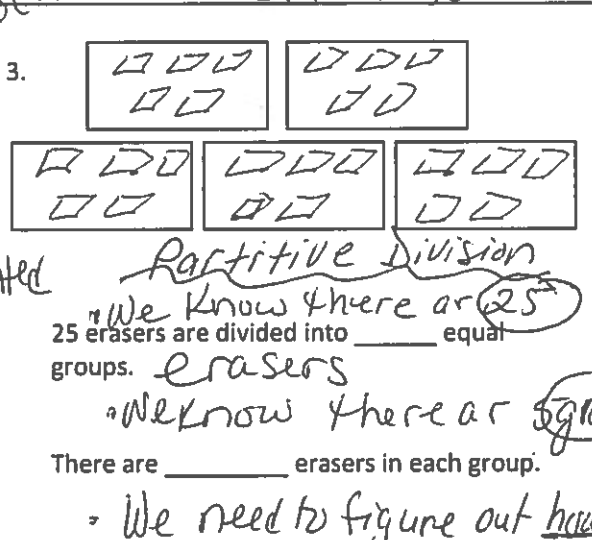 3.
Partitive Division
We know there ar 25
25 erasers are divided into ______ equal
groups. erasers
We know there ar 5
There are ______ erasers in each group.
We need to figure out